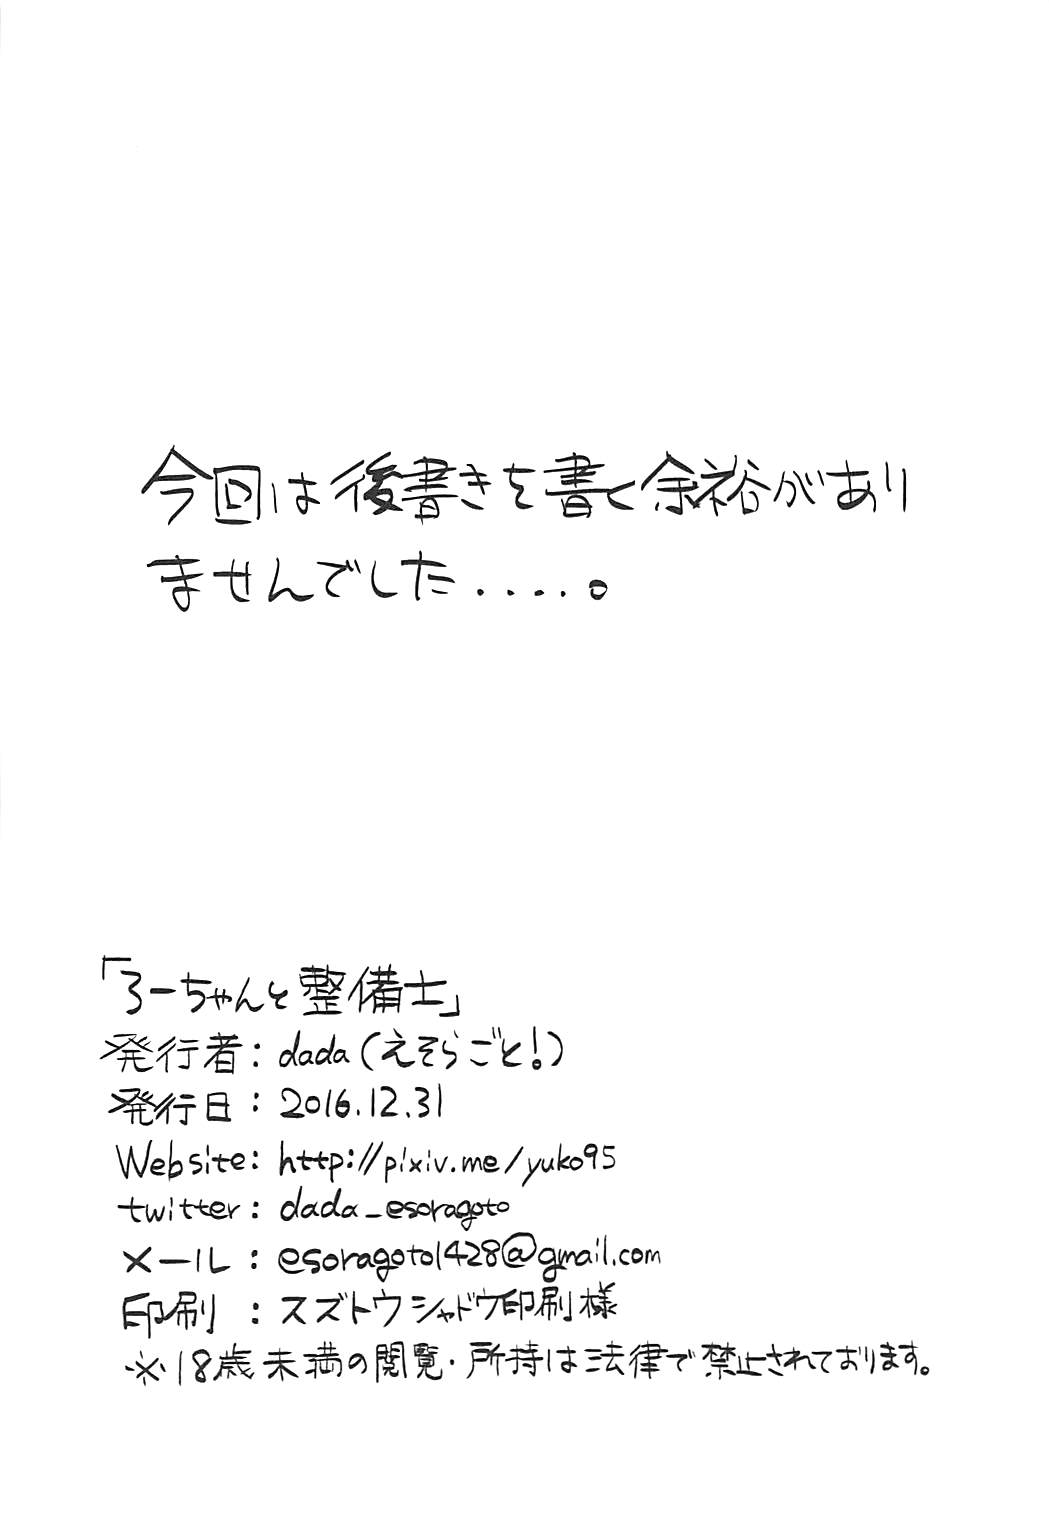 今回は後書きを書く余裕があり
ませんでした.....。
「ろーちゃんと整備士」
発行者：dada(えそらごと!)
発行日：2016.12.31
Website: http://pixiv.me/yuko95
twitter: dada_esoragoto
メール：esoragoto1428@gmail.com
印刷：スズトウシャドウ印刷様
※18歳未満の閲覧・所持は法律で禁止されております。